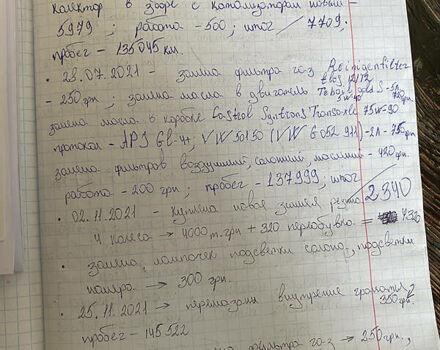 коллектор в зборе с катализатором новый -
5979; работа - 500; итог 7709;
пробег - 135045 км.
• 28.07.2021 - замена фильтра газ
- 250 грн; замена масла в двигатель
замена масла в коробке Castrol Syntrans Transaxle 75w-90
- API GL-4+, VW 501 50 (VW G 052 911) - 2л - 750 грн
замена фильтров воздушный, салонный, масляный - 420 грн.
работа - 200 грн; пробег - 137999; итог
2340
• 02.11.2021 - куплена новая зимняя резина
4 колеса → 4000 т.грн + 320 перебувка =
• замена лампочек подсветки салона, подсветки
номера → 300 грн.
• 25.11.2021 → внутрение 350 грн.
пробег - 145522
фильтра газ → 250 грн,